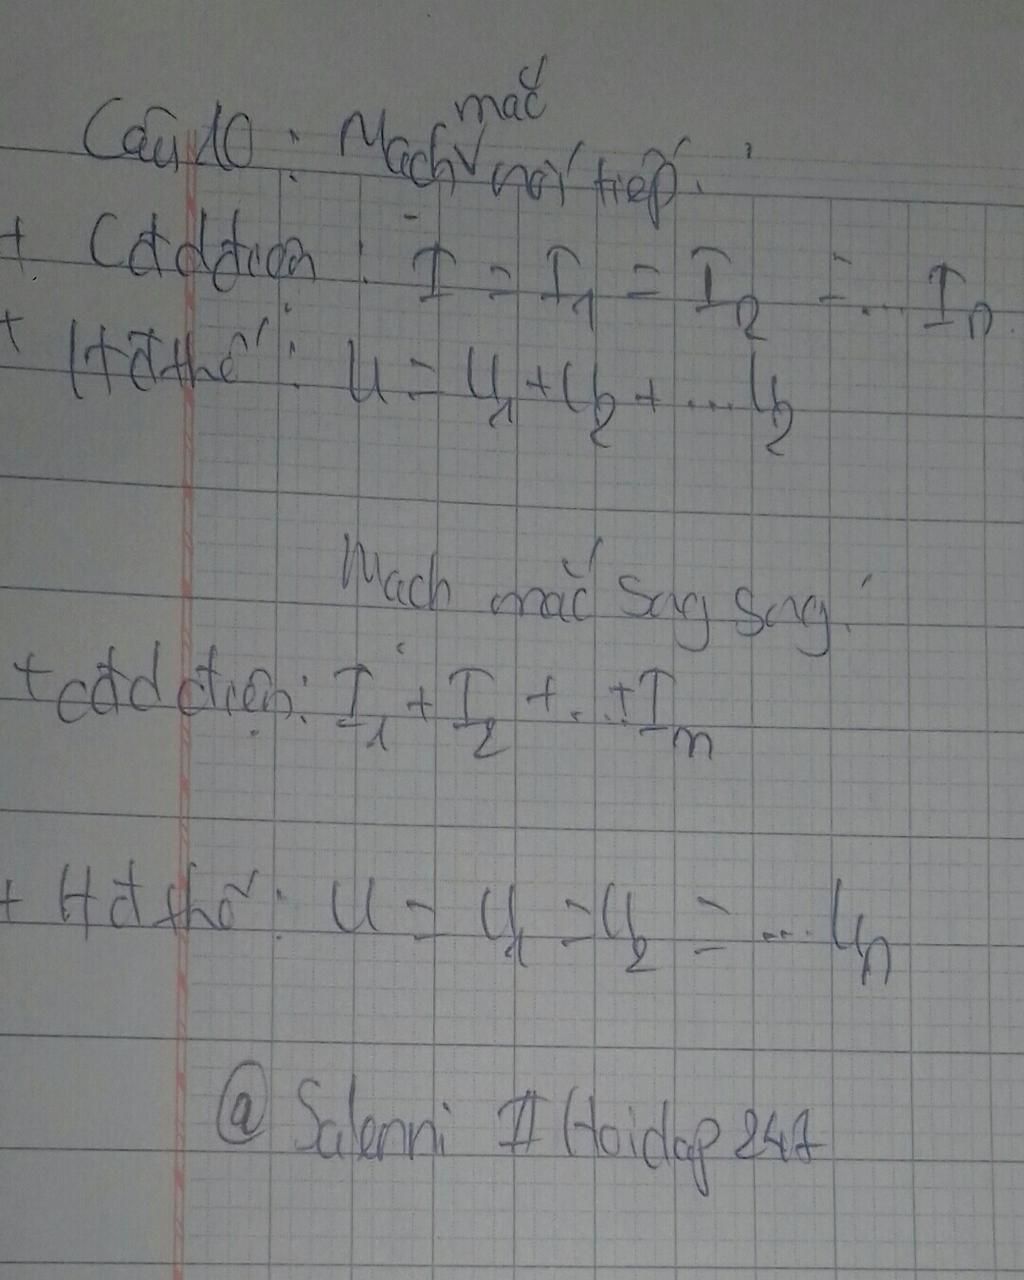 Câu 10 : Mạch mắc nối tiếp.
+ Cđdđiện : I = I1 = I2 = ... In
+ Hđthế : U = U1 + U2 + ... U2
Mạch mắc Sog Sog
+ cđd điện: I1 + I2 + .. + Im
+ Hđ thế : U = U1 = U2 = ... Un
@ Salenni # Hoidap 247